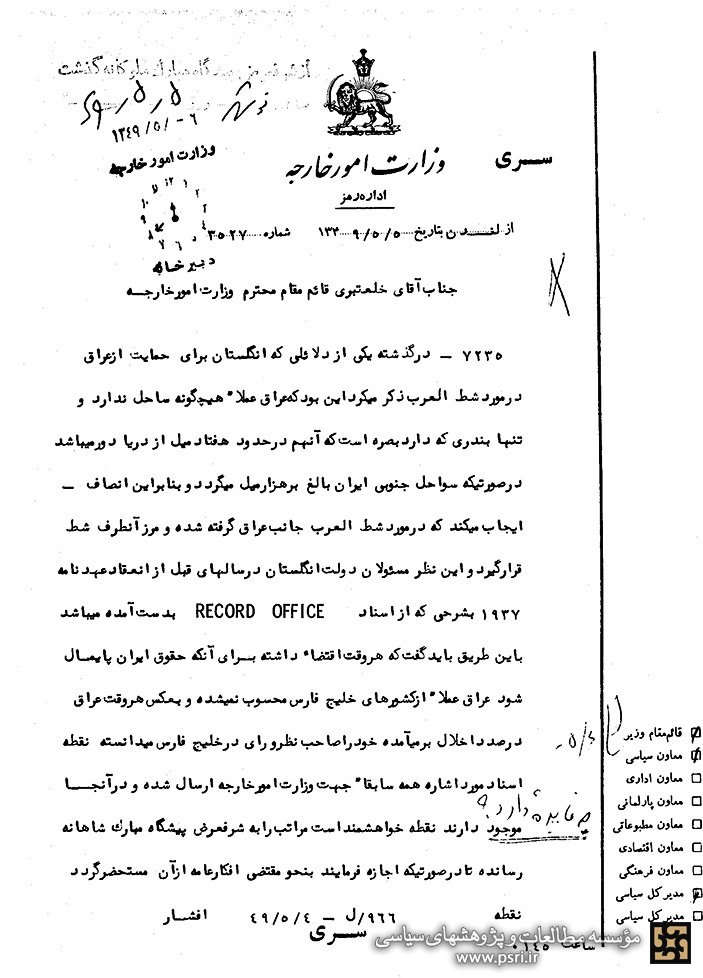 از شرفعرض پیشگاه مبارک ملوکانه گذشت
نوشهر
۱۳۴۹/۵/-۶
وزارت امور خارجه
دبیرخانه
سری
وزارت امور خارجه
اداره رمز
از لندن بتاریخ ۱۳۳۰۹/۵/۵ شماره ۳۵۲۷
جناب آقای خلعتبری قائم مقام محترم وزارت امور خارجه
۷۲۳۵ – درگذشته یکی از دلائلی که انگلستان برای حمایت از عراق
در مورد شط العرب ذکر میکرد این بود که عراق عملا" هیچگونه ساحل ندارد و
تنها بندری که دارد بصره است که آنهم در حدود هفتاد میل از دریا دور میباشد
در صورتیکه سواحل جنوبی ایران بالغ بر هزار میل میگردد و بنابراین انصاف –
ایجاب میکند که در مورد شط العرب جانب عراق گرفته شده و مرز آنطرف شط
قرار گیرد و این نظر مسئولان دولت انگلستان در سالهای قبل از انعقاد عهدنامه
۱۹۳۷ بشرحی که از اسناد RECORD OFFICE بدست آمده میباشد
باین طریق باید گفت که هر وقت اقتضاء داشته برای آنکه حقوق ایران پایمال
شود عراق عملا" از کشورهای خلیج فارس محسوب نمیشده و بعکس هر وقت عراق
درصدد اخلال برمیآمده خود را صاحب نظر و رای در خلیج فارس میدانسته نقطه
اسناد مورد اشاره همه سابقا" جهت وزارت امور خارجه ارسال شده و در آنجا
چه فایده دارد ؟
موجود دارند نقطه خواهشمند است مراتب را به شرفعرض پیشگاه مبارک شاهانه
رسانده تا در صورتیکه اجازه فرمایند بنحو مقتضی افکار عامه از آن مستحضر گردد
نقطه ۹۶۶/ل – ۴۹/۵/۴ افشار
سری
قائم مقام وزیر
معاون سیاسی
معاون اداری
معاون پارلمانی
معاون مطبوعاتی
معاون اقتصادی
معاون فرهنگی
مدیر کل سیاسی
مدیر کل سیاسی
ساعت ۰۱۴۵
مؤسسه مطالعات و پژوهشهای سیاسی
www.psri.ir